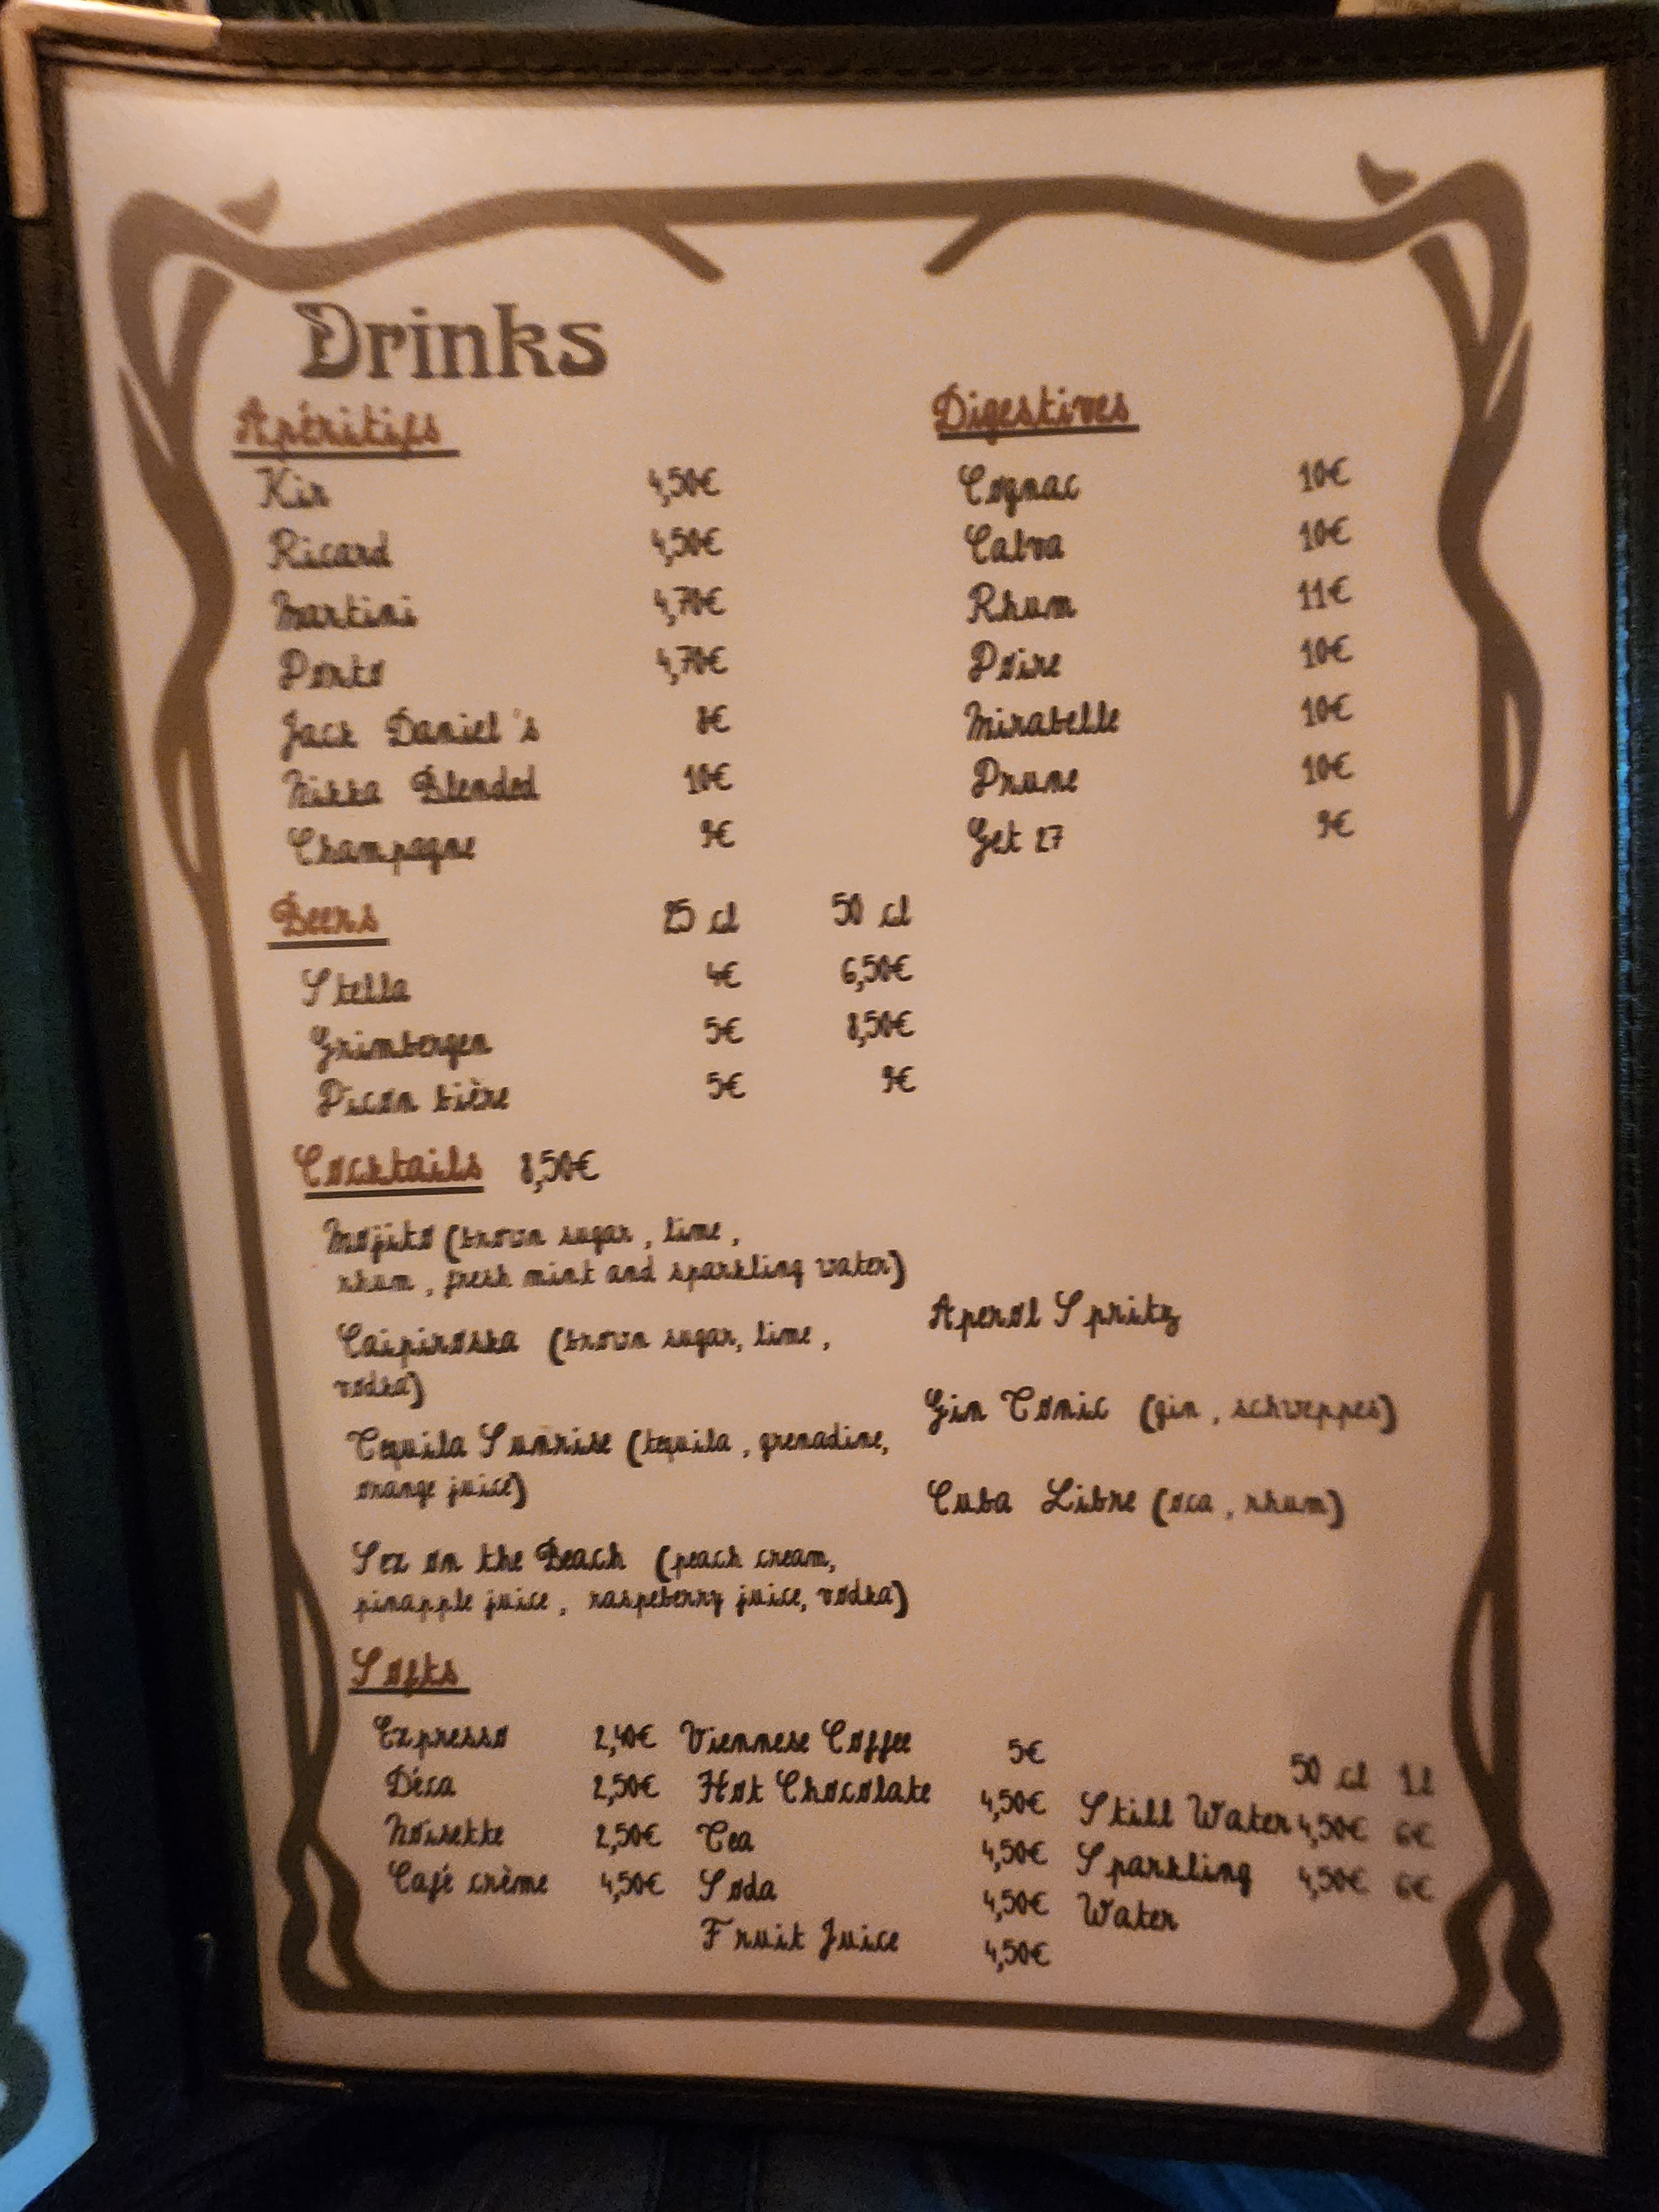 Drinks
Apéritifs
Kir 4,50€
Ricard 4,50€
Martini 4,70€
Porto 4,70€
Jack Daniel's 8€
Nikka Blended 10€
Champagne 9€
Digestives
Cognac 10€
Calva 10€
Rhum 11€
Poire 10€
Mirabelle 10€
Prune 10€
Get 27 9€
Beers 25 cl 50 cl
Stella 4€ 6,50€
Grimbergen 5€ 8,50€
Picon bière 5€ 9€
Cocktails 8,50€
Mojito (brown sugar, lime,
rhum, fresh mint and sparkling water)
Caipiroska (brown sugar, lime,
vodka)
Tequila Sunrise (tequila, grenadine,
orange juice)
Sex on the Beach (peach cream,
pinapple juice, raspeberry juice, vodka)
Aperol Spritz
Gin Tonic (gin, schweppes)
Cuba Libre (oca, rhum)
Softs
Expresso 2,40€
Déca 2,50€
Noisette 2,50€
Café crème 4,50€
Viennese Coffee 5€
Hot Chocolate 4,50€
Tea 4,50€
Soda 4,50€
Fruit Juice 4,50€
50 cl 1l
Still Water 4,50€ 6€
Sparkling 4,50€ 6€
Water